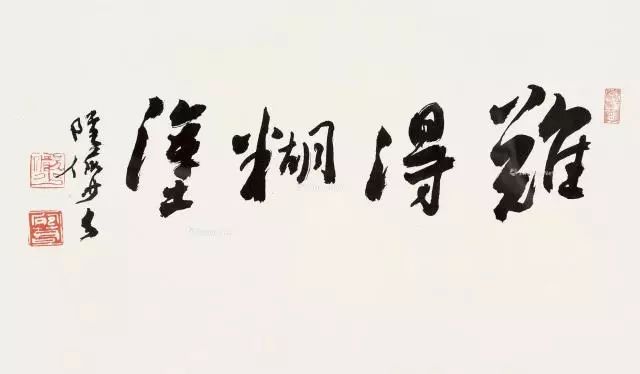 難得糊塗
陸儼少